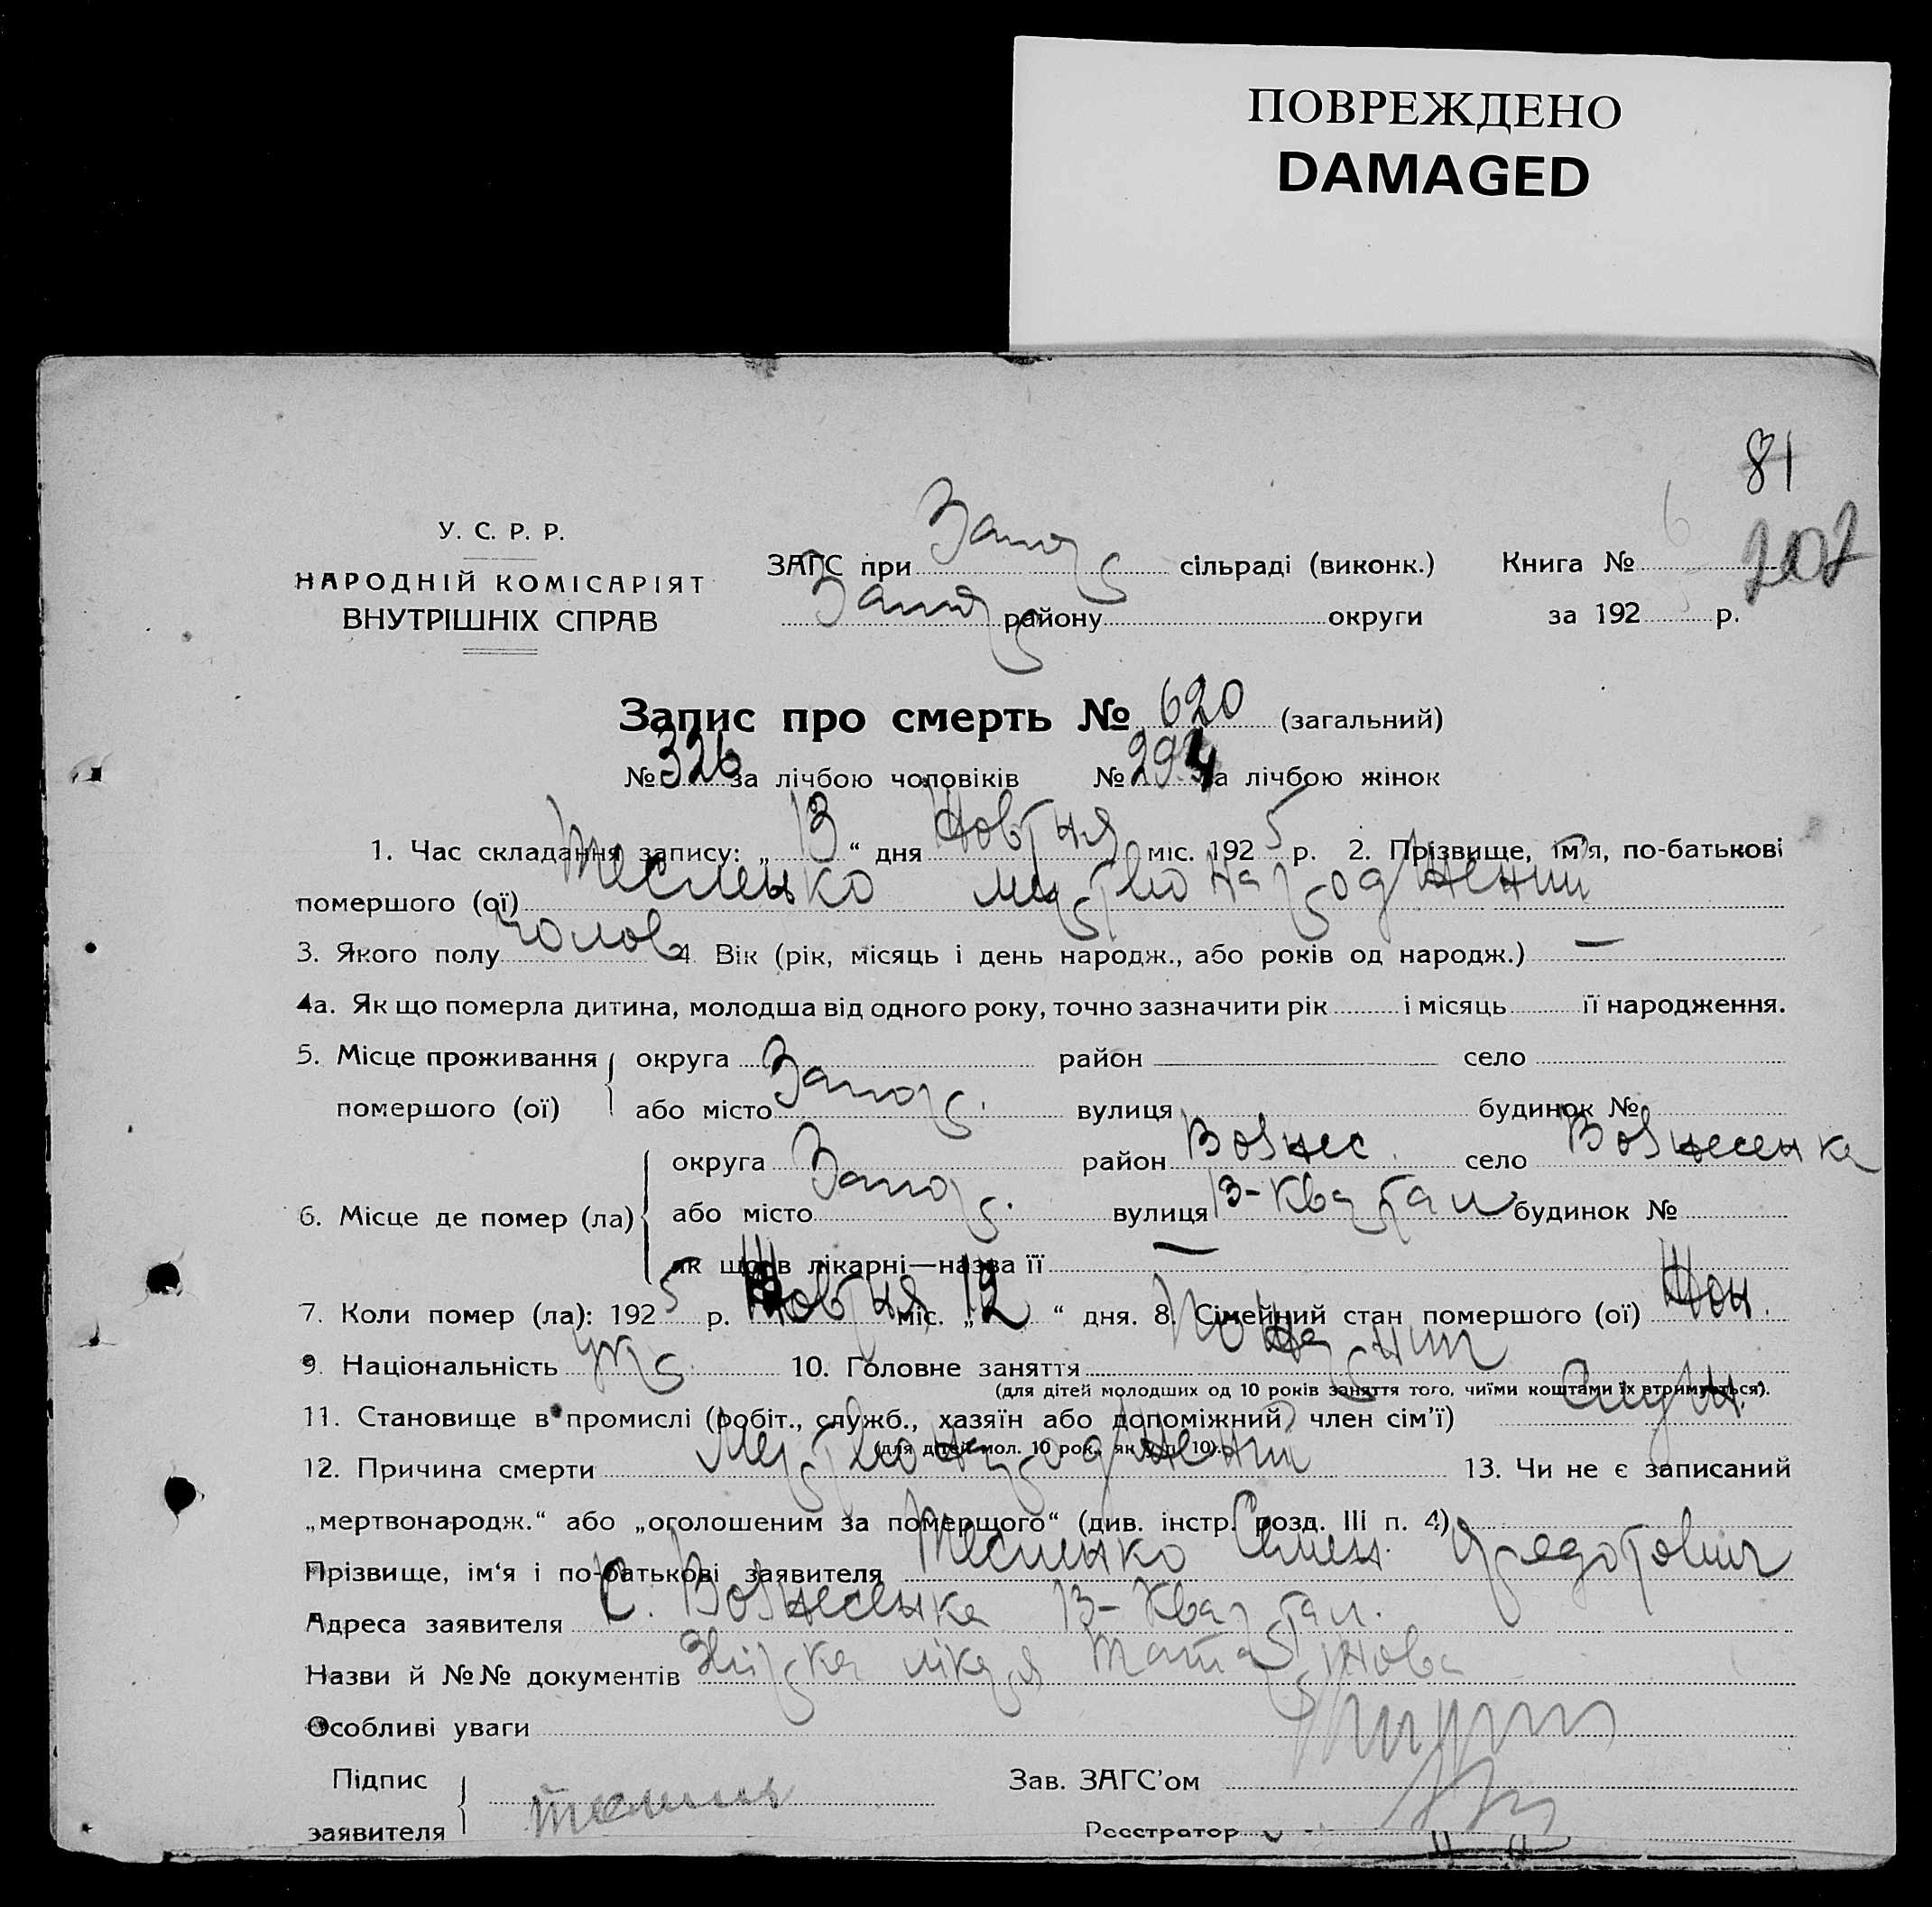 ПОВРЕЖДЕНО
DAMAGED
81
У. С. Р. Р.
НАРОДНІЙ КОМІСАРІЯТ
ВНУТРІШНІХ СПРАВ
ЗАГС при Запор сільраді (виконк.) Книга № 207
Запор району округи за 192 р.
Запис про смерть № 620 (загальний)
№ 326 за лічбою чоловіків № 294 за лічбою жінок
1. Час складання запису: „13“ дня Жовтня міс. 1925 р. 2. Прізвище, ім’я, по-батькові
помершого (ої) Тесленко мертвонароджений
3. Якого полу чолов 4. Вік (рік, місяць і день народж., або років од народж.) —
4а. Як що померла дитина, молодша від одного року, точно зазначити рік і місяць її народження.
5. Місце проживання округа район село
помершого (ої) або місто Запор. вулиця будинок №
округа район Вознес. село Вознесенка
6. Місце де помер (ла) або місто Запор. вулиця 13-квартал будинок №
як що в лікарні—назва її —
7. Коли помер (ла): 1925 р. Жовтня міс. „12“ дня. 8. Сімейний стан помершого (ої)
9. Національність укр. 10. Головне заняття
(для дітей молодших од 10 років заняття того, чиїми коштами їх втримується).
11. Становище в промислі (робіт., служб., хазяїн або допоміжний член сім’ї) Служ.
(для дітей мол. 10 рок., як в п. 10).
12. Причина смерти Мертвонароджений 13. Чи не є записаний
„мертвонародж.“ або „оголошеним за помершого“ (див. інстр. розд. III п. 4)
Прізвище, ім‘я і по-батькові заявителя Тесленко Семен Федотович
Адреса заявителя С. Вознесенка 13-квартал.
Назви й №№ документів лікаря
Особливі уваги
Підпис Зав. ЗАГС’ом
заявителя Реєстратор